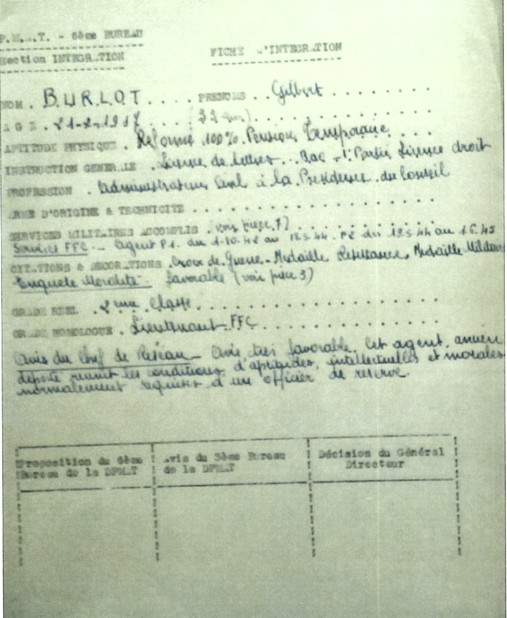 P.M.A.T. - 6ème BUREAU
Section INTEGRATION
FICHE D'INTEGRATION
NOM . BURLOT . . . . PRENOMS . . Gilbert . . . . . .
AGE . 21-2-1918 . . . . (32 ans) . . . . . . . .
APTITUDE PHYSIQUE . Réformé 100% Pension Temporaire . .
INSTRUCTION GENERALE . Licence de Lettres . . Bac . 1e Partie Licence droit
PROFESSION . administrateur Civil à la Présidence du Conseil
ARME D'ORIGINE & TECHNICITE . . . . . . . . . . . . . .
SERVICES MILITAIRES ACCOMPLIS . (voir pièce 7) . . . . . . .
Services FFC - agent P1. du 1-10-42 au 18 5 44. P2 du 19 5 44 au 1.6.45
CITATIONS & DECORATIONS . Croix de Guerre - Médaille Résistance - Médaille Militaire
Enquête Moralité . favorable (voir pièce 3)
GRADE REEL . 2ème Classe . . . . . . . . . . .
GRADE HOMOLOGUE . Lieutenant FFC . . . . . . . . . . .
Avis du Chef de Réseau - Avis très favorable. Cet agent, ancien
déporté réunit les conditions d'aptitudes, intellectuelles et morales
normalement requises d'un officier de réserve.
Proposition du 6ème Bureau de la DPMAT
Avis du 3ème Bureau de la DPMAT
Décision du Général Directeur